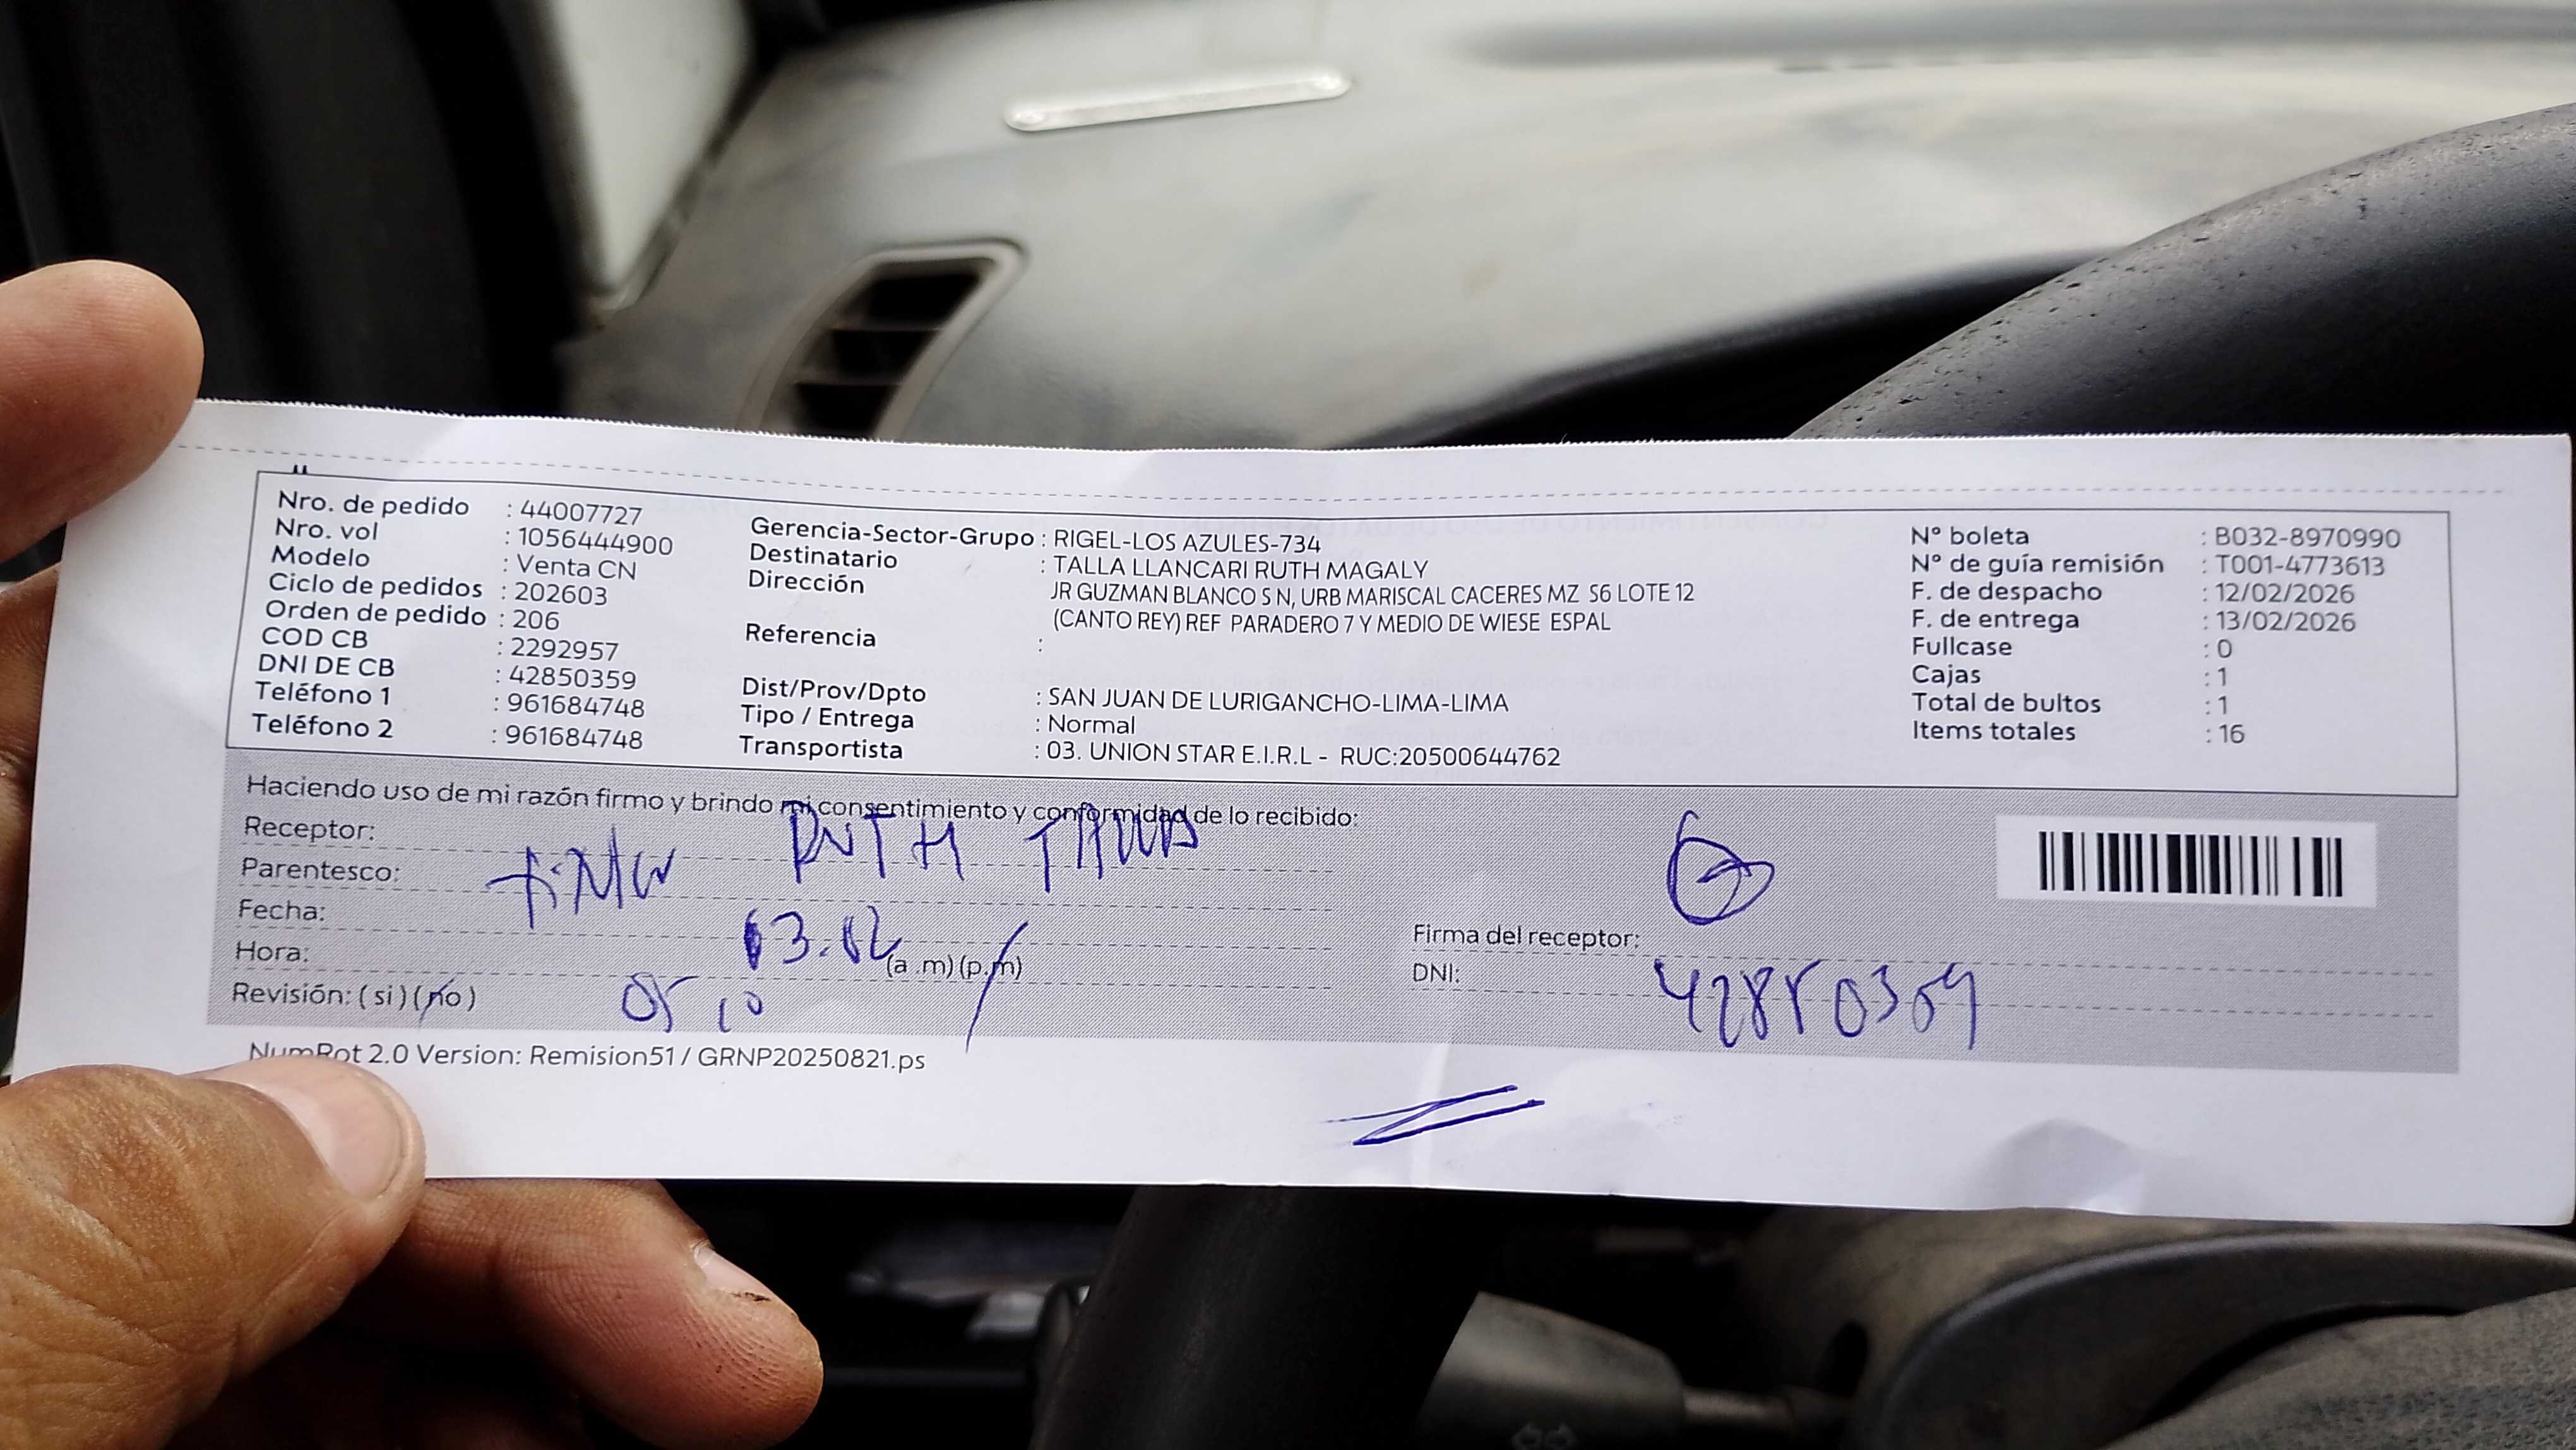 Nro. de pedido : 44007727
Nro. vol : 1056444900
Modelo : Venta CN
Ciclo de pedidos : 202603
Orden de pedido : 206
COD CB : 2292957
DNI DE CB : 42850359
Teléfono 1 : 961684748
Teléfono 2 : 961684748
Gerencia-Sector-Grupo : RIGEL-LOS AZULES-734
Destinatario : TALLA LLANCARI RUTH MAGALY
Dirección JR GUZMAN BLANCO S N, URB MARISCAL CACERES MZ S6 LOTE 12
(CANTO REY) REF PARADERO 7 Y MEDIO DE WIESE ESPAL
Referencia :
Dist/Prov/Dpto : SAN JUAN DE LURIGANCHO-LIMA-LIMA
Tipo / Entrega : Normal
Transportista : 03. UNION STAR E.I.R.L - RUC:20500644762
N° boleta : B032-8970990
N° de guía remisión : T001-4773613
F. de despacho : 12/02/2026
F. de entrega : 13/02/2026
Fullcase : 0
Cajas : 1
Total de bultos : 1
Items totales : 16
Haciendo uso de mi razón firmo y brindo mi consentimiento y conformidad de lo recibido:
Receptor: RUTH
Parentesco:
Fecha: 13.02
Hora: (a .m) (p.m)
Revisión: ( si ) ( no )
Firma del receptor:
DNI:
NumRot 2.0 Version: Remision51 / GRNP20250821.ps